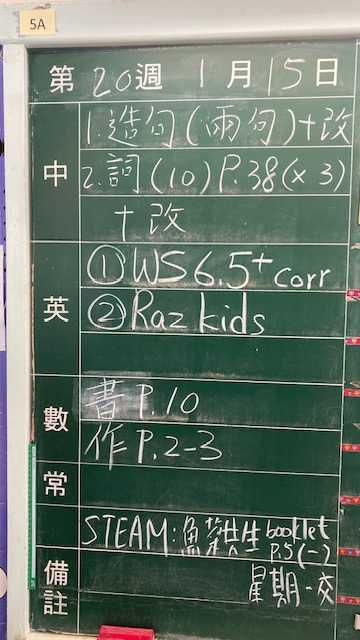 5A
第20週 1月15日
中
1.造句(兩句)+改
2.詞(10) P.38(x3)
+改
英
①WS6.5+corr
②Raz kids
數
書 P.10
作 P.2-3
常
STEAM:魚菜共生 booklet
P.5(一)
備註
星期一交